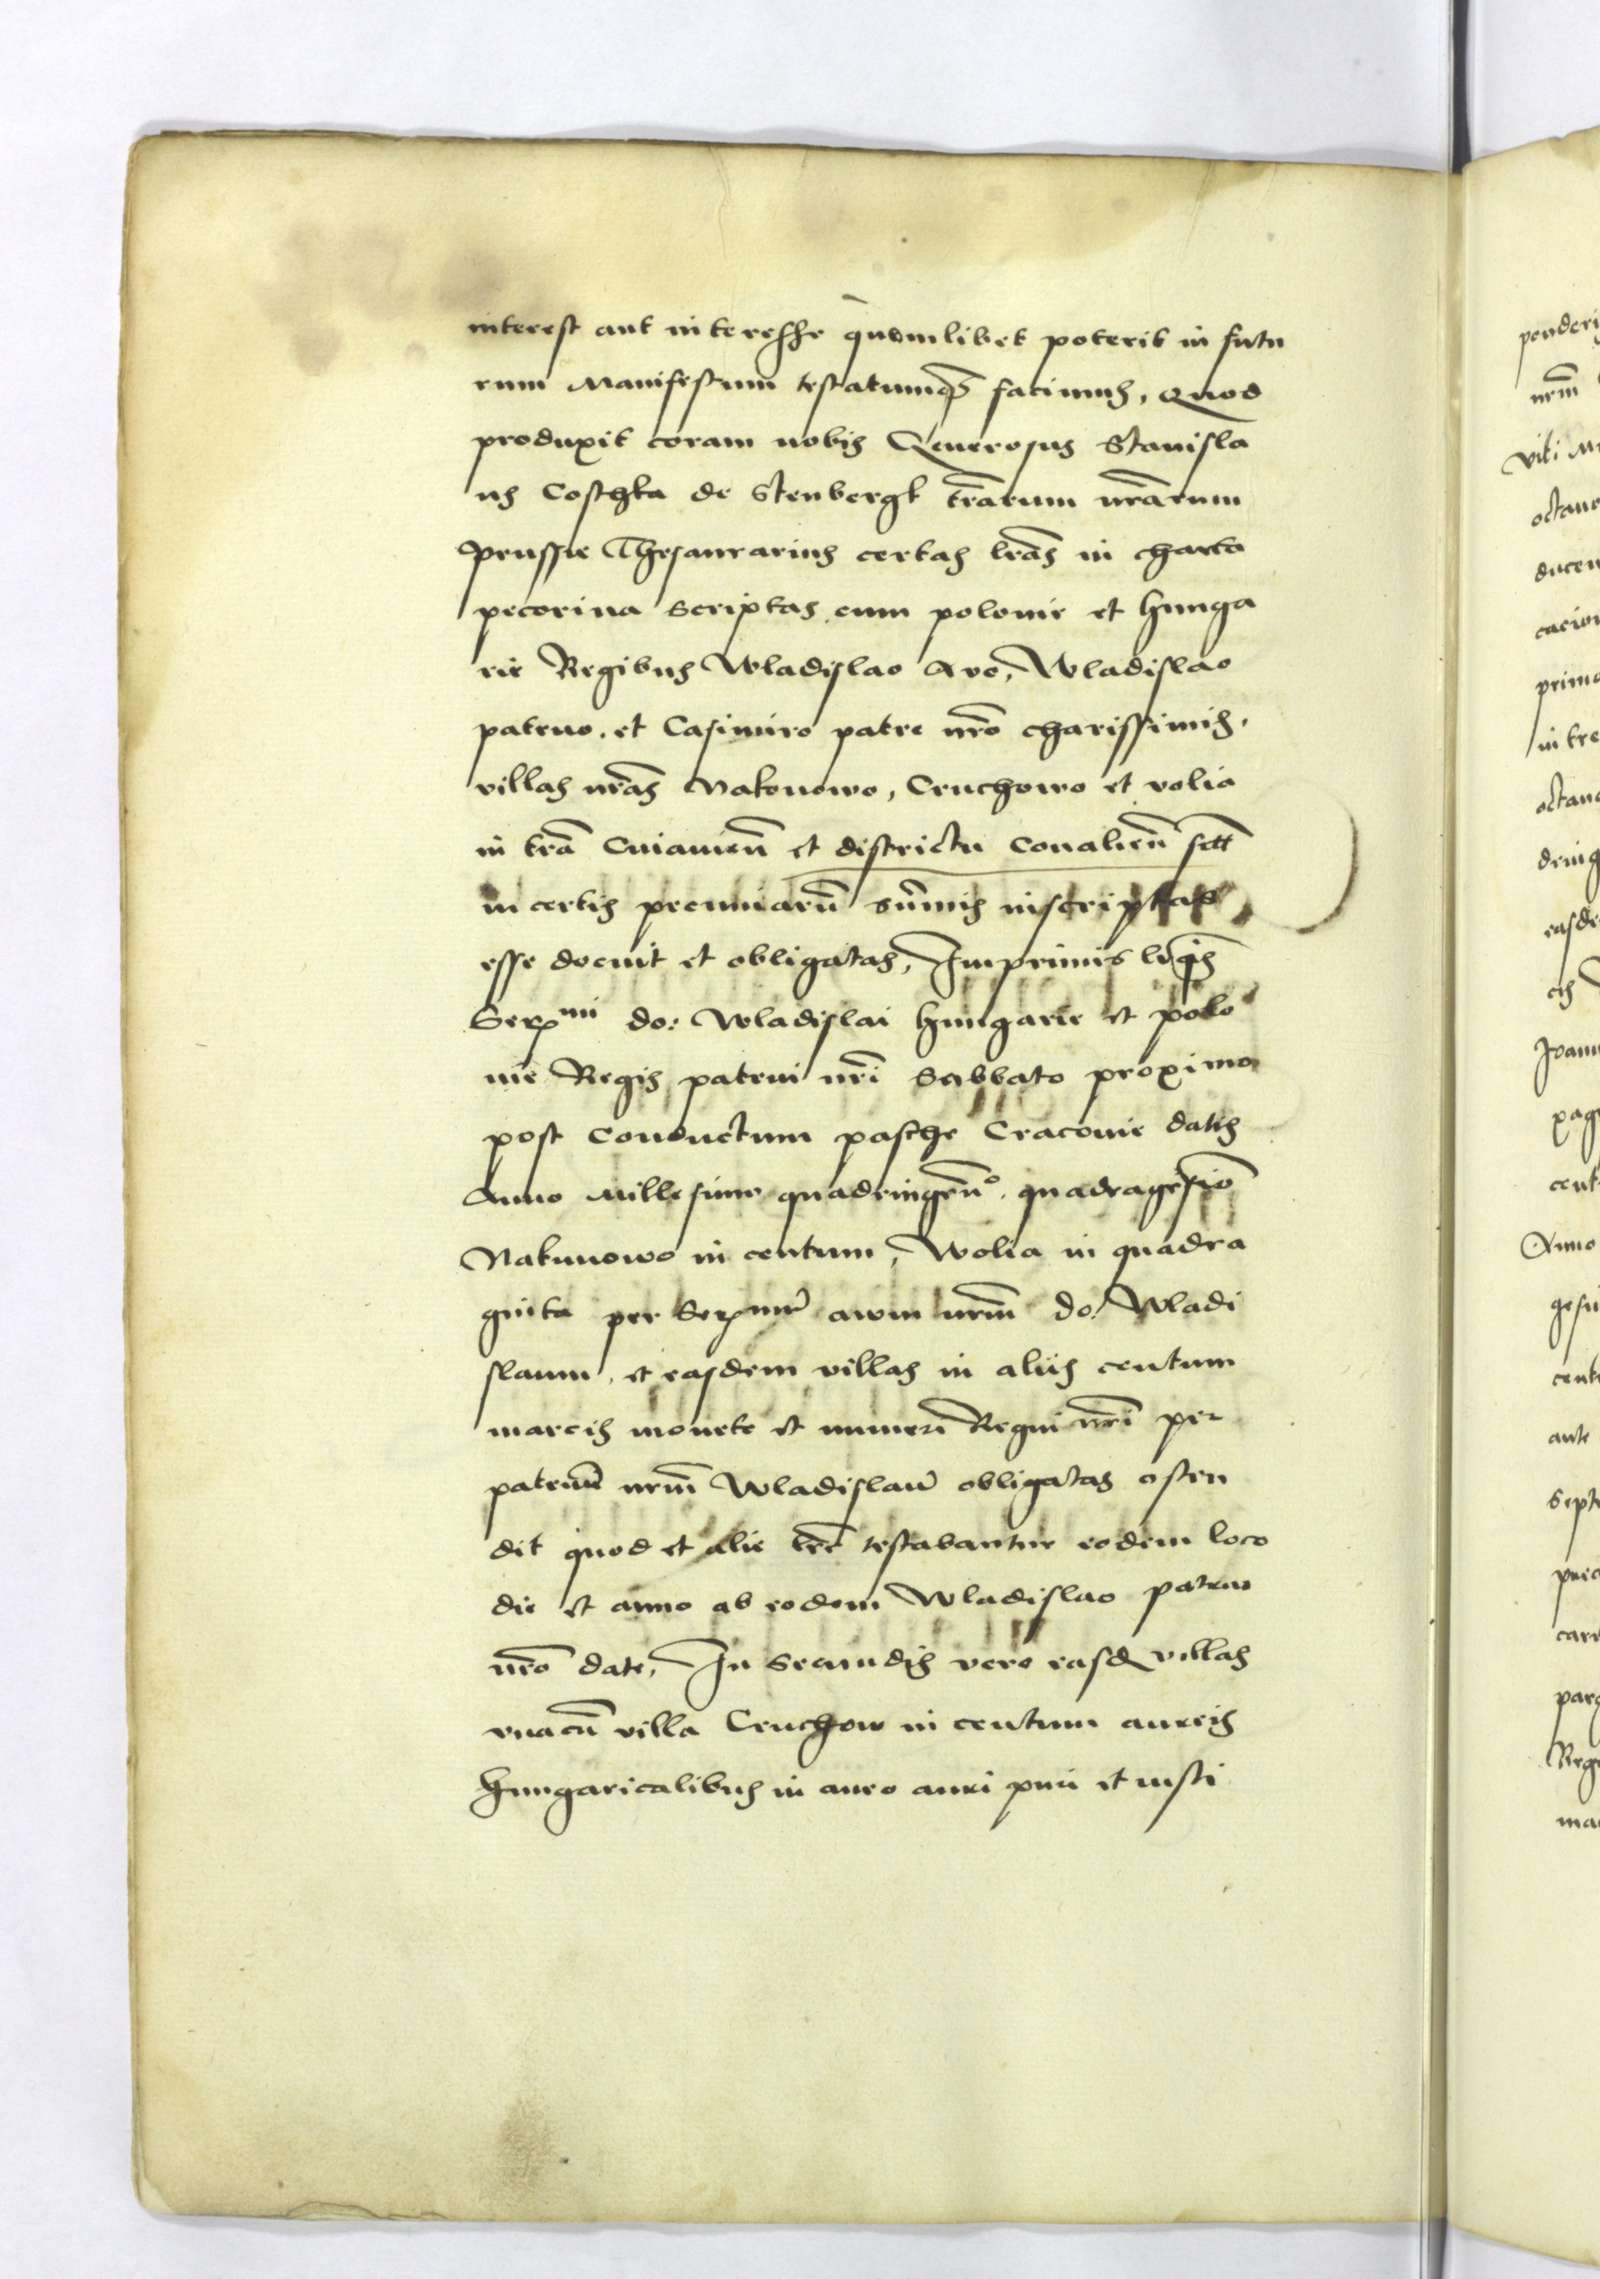 interest aut interesse quomlibet poterit in futu
rum Manifestum testatumq facimus, Quod
produxit coram nobis Generosus Stanisla
us Coschka de Stenbergk trarum nrarum
prussie Thesaurarius certas lras in charta
pecorina scriptas cum polonie et hunga
rie Regibus Wladislao Avo, Wladislao
patruo, et Casimiro patre nro charissimis,
villas nras Nakonowo, Cruchowo et volia
in tra Cuiavien et districtu Convalien
in certis pecuniaru sumis inscriptas
esse docuit et obligatas, Imprimis
Sermi do: Wladislai hungarie et polo
nie Regis patrui nri Sabbato proximo
post Conductum pasche Cracovie datis
Anno Millesimo quadringen°. quadragesio
Nakunowo in centum, Wolia in quadra
ginta per avum nrm do: Wladi
slaum, et easdem villas in aliis centum
marcis monete et numeri Regni nri per
patruu nrm Wladislau obligatas osten
dit quod et alie lre testabantur eodem loco
die et anno ab eodem Wladislao patruo
nro date, In Secundis vero easd villas
unacu villa Cruchow in centum aureis
hungaricalibus in auro auri puri et iusti
ponderis
nrm
viti
octavo
ducen
cacion
primo
in tre
octavo
dring
easde
Joann
cent
Anno
gesi
cent
ante
Septe
Reg